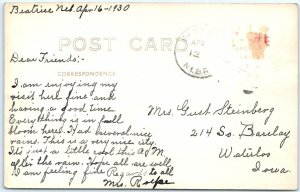 Beatrice Neb. Apr-16-1930
POST CARD
Dear Friends:-
CORRESPONDENCE
I am enjoying my
visit here fine and
having a good time.
Everything is in full
bloom here. Had several nice
rains. This is a very nice city.
It's just a little cold this A M
after the rain. Hope all are well.
I am feeling fine. Regards to all
Mrs.
APR
12
NEBR.
Mrs. Gust Steinberg
214 So. Barclay
Waterloo
Iowa.